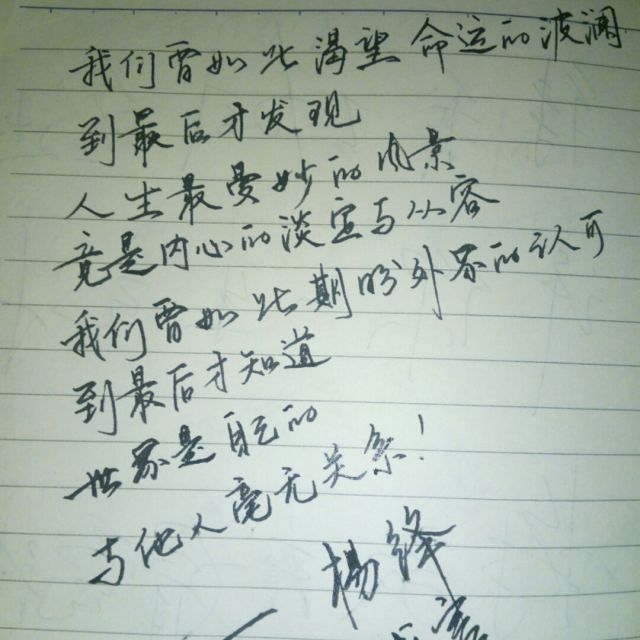 我们曾如此渴望命运的波澜
到最后才发现
人生最曼妙的风景
竟是内心的淡定与从容
我们曾如此期盼外界的认可
到最后才知道
世界是自己的
与他人毫无关系!
杨绛